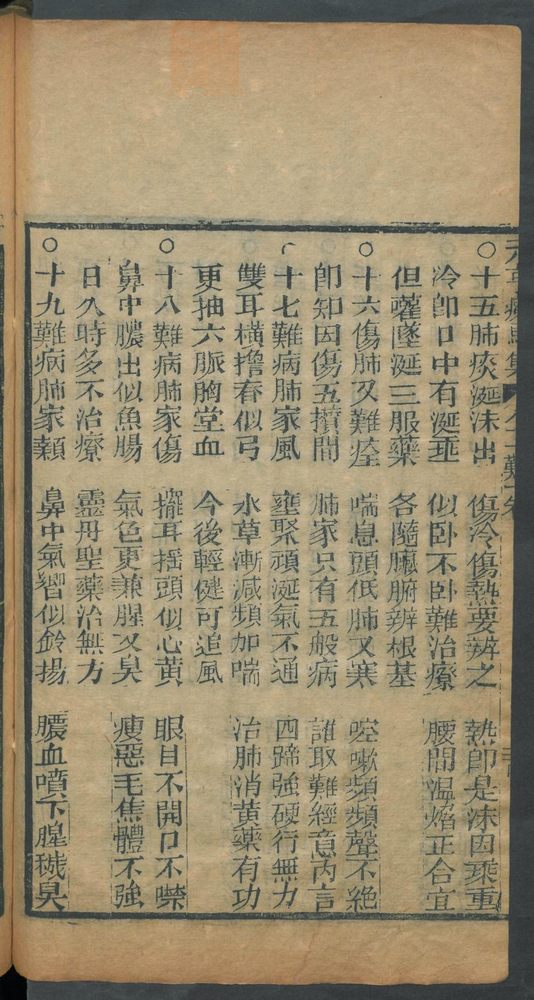 ○十五肺痰涎沫出　傷冷傷熱要辨之　熱卽是沫因乘重
冷卽口中有涎垂　似卧不卧難治療　腰間溫焰正合宜
但嚾墜涎三服藥　各隨臟腑辨根基
○十六傷肺又難痊　喘息頭低肺又寒　啌嗽頻頻聲不絶
卽知因傷五攢間　肺家只有五般病　誰取難經意內言
○十七難病肺家風　壅聚頑涎氣不通　四蹄強硬行無力
雙耳橫擔脊似弓　水草漸減頻加喘　治肺消黃藥有功
更抽六脈胸堂血　今後輕健可追風
○十八難病肺家傷　擺耳搖頭似心黃　眼目不開口不噤
鼻中膿出似魚腸　氣色更兼腥又臭　瘦惡毛焦體不強
日久時多不治療　靈丹聖藥治無方
○十九難病肺家顙　鼻中氣響似鈴揚　膿血噴下腥穢臭